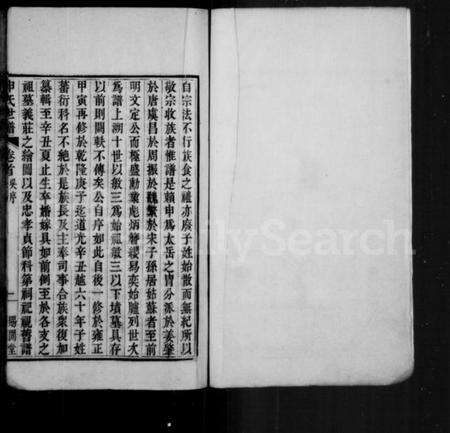 自宗法不行族食之禮亦廢子姓始散而無紀所以
敬宗收族者惟譜是賴申為太岳之胄分派於姜肇
於唐虞昌於周振於魏繁於宋子孫居姑蘇者至前
明文定公而極盛勳業彪炳簪纓易奕始臚列世次
為譜上溯十世以敏三為始祖敏三以下墳墓具存
以前則闕軼不傳矣公自序如此自後一修於雍正
甲寅再修於乾隆庚子迄道光辛丑越六十年子姓
蕃衍科名不絕於是族長及主奉司事合族衆復加
纂輯至辛丑夏止生卒婚嫁具如前例至於各支之
祖墓義莊之繪圖以及忠孝貞節科第祠祝視舊譜
申氏世譜 卷首 序 一 賜閒堂
FamilySearch